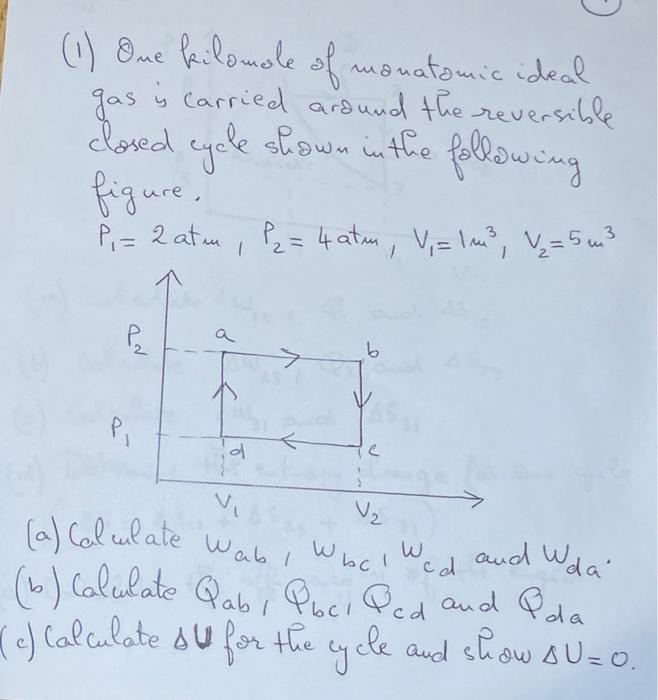 (1) One kilomole of monatomic ideal
gas is carried around the reversible
closed cycle shown in the following
figure.
P₁ = 2 atm, P₂ = 4 atm, V₁ = 1m³, V₂ = 5m³
P₂
a
b
P₁
d
c
V₁
V₂
(a) Calculate Wab, Wbc, Wcd and Wda.
(b) Calculate Qab, Qbc, Qcd and Qda
(c) Calculate ΔU for the cycle and show ΔU = 0.